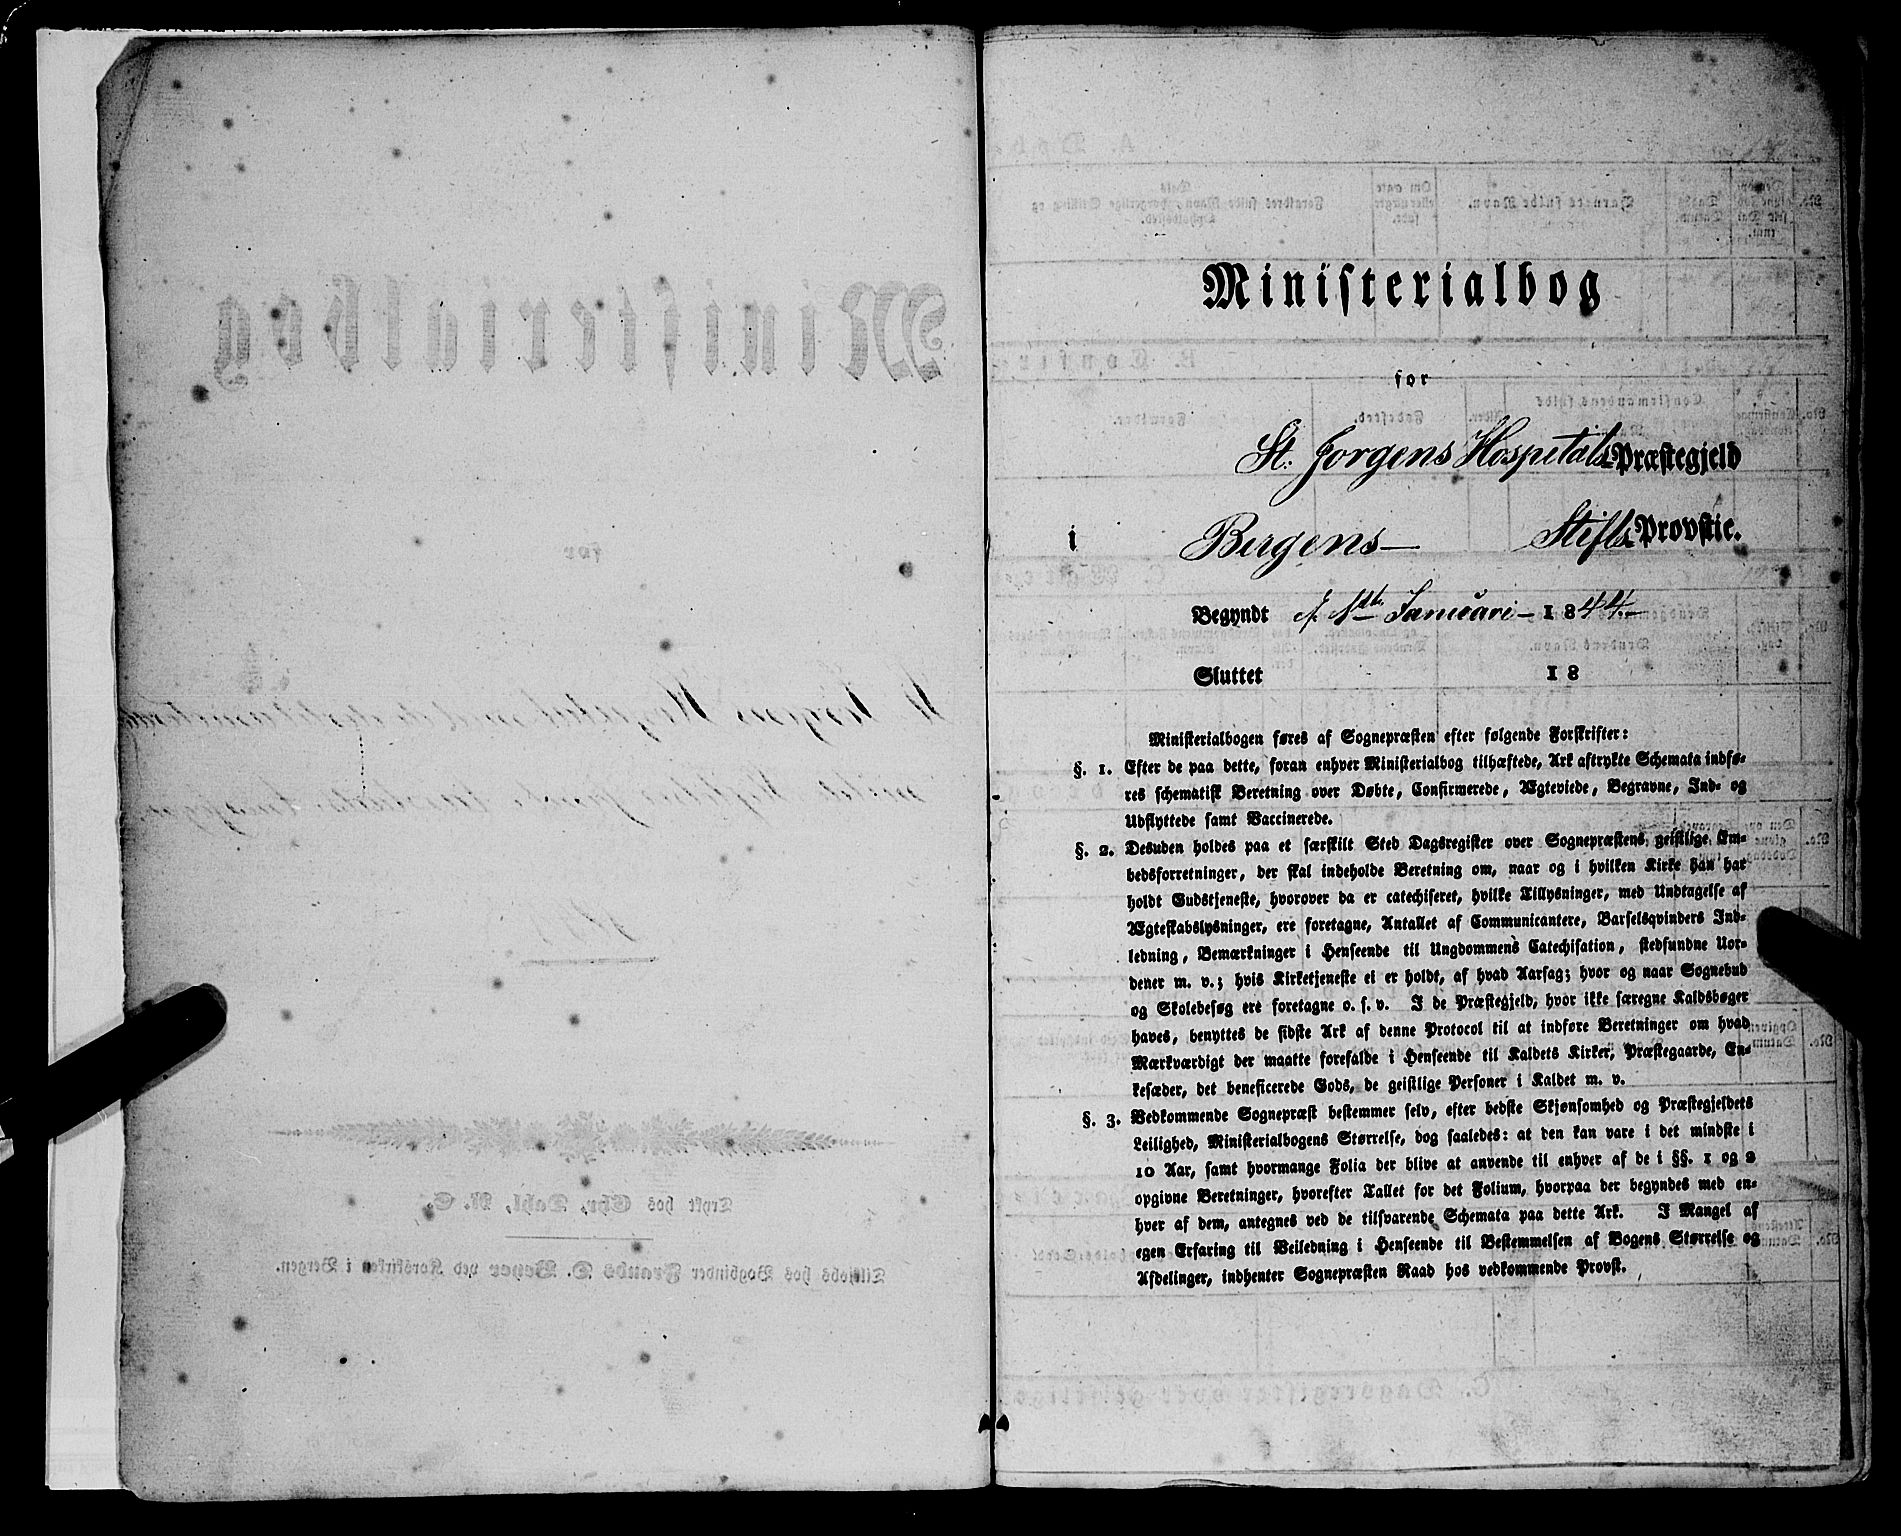 Ministerialbog
for
St. Jørgens Hospitals Præstegjeld
i Bergens Stifts Provstie.
Begyndt d. 1ste Januari 1844.
Sluttet 18
Ministerialbogen føres af Sognepræsten efter følgende Forskrifter:
§. 1. Efter de paa dette, foran enhver Ministerialbog tilhæftede, Ark aftrykte Schemata indfø-
res schematisk Beretning over Døbte, Confirmerede, Ægteviede, Begravne, Ind- og
Udflyttede samt Vaccinerede.
§. 2. Desuden holdes paa et særskilt Sted Dagsregister over Sognepræstens geistlige Em-
bedsforretninger, der skal indeholde Beretning om, naar og i hvilken Kirke han har
holdt Gudstjeneste, hvorover da er catechiseret, hvilke Tillysninger, med Undtagelse af
Ægteskabslysninger, ere foretagne, Antallet af Communicantere, Barselqvinders Ind-
ledning, Bemærkninger i Henseende til Ungdommens Catechisation, stedfundne Uor-
dener m. v.; hvis Kirketjeneste ei er holdt, af hvad Aarsag; hvor og naar Sognebud
og Skolebesøg ere foretagne o. s. v. I de Præstegjeld, hvor ikke færegne Kaldsbøger
haves, benyttes de sidste Ark af denne Protocol til at indføre Beretninger om hvad
Mærkværdigt der maatte forefalde i Henseende til Kaldets Kirker, Præstegaarde, En-
kesæder, det beneficerede Gods, de geistlige Personer i Kaldet m. v.
§. 3. Vedkommende Sognepræst bestemmer selv, efter bedste Skjønsomhed og Præstegjeldets
Leilighed, Ministerialbogens Størrelse, dog saaledes: at den kan vare i det mindste i
10 Aar, samt hvormange Folia der blive at anvende til enhver af de i §§. 1 og 2
opgivne Beretninger, hvorefter Tallet for det Folium, hvorpaa der begyndes med en-
hver af dem, antegnes ved de tilsvarende Schemata paa dette Ark. I Mangel af
egen Erfaring til Veiledning i Henseende til Bestemmelsen af Bogens Størrelse og
Afdelinger, indhenter Sognepræsten Raad hos vedkommende Provst.